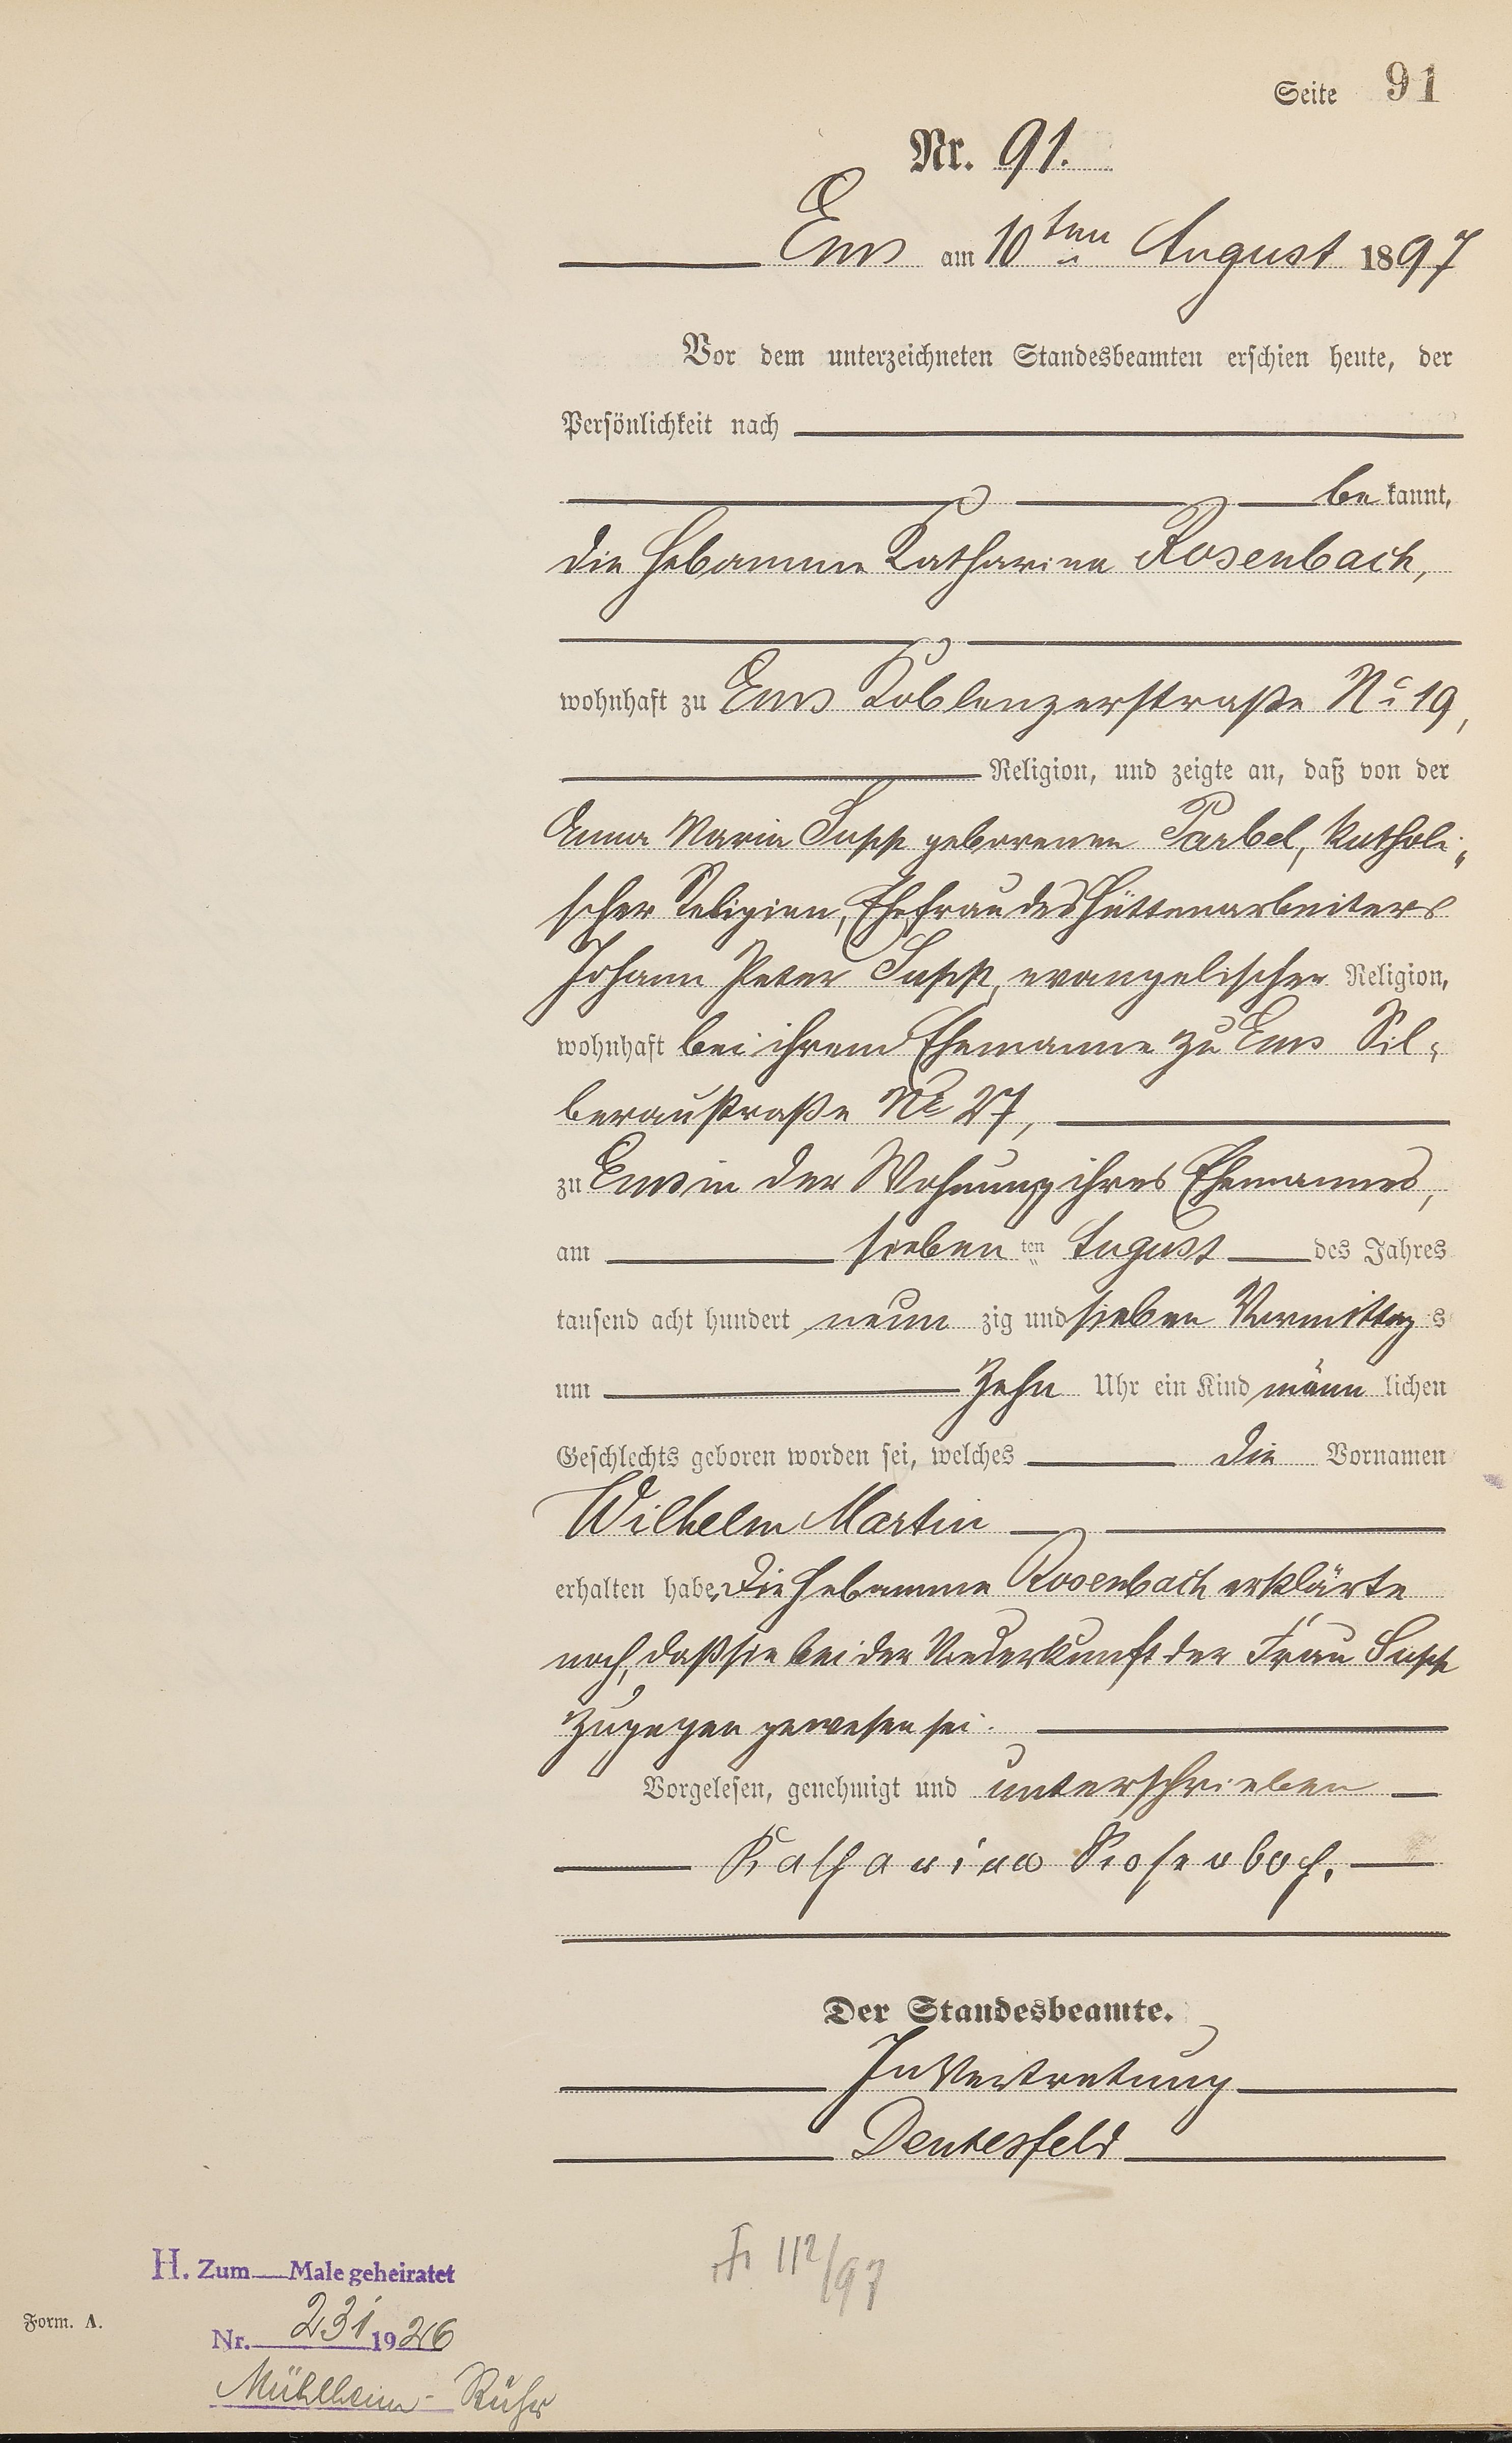 Seite 91
Nr. 91.
Ems am 10ten August 1897
Vor dem unterzeichneten Standesbeamten erschien heute, der
Persönlichkeit nach
be kannt,
die Hebamme Katharina Rosenbach,
wohnhaft zu Ems Koblenzerstraße No 19,
Religion, und zeigte an, daß von der
Anna Maria Supp geborenen Parbel, katholi-
scher Religion, Ehefrau des Hüttenarbeiters
Johann Peter Supp, evangelischer Religion,
wohnhaft bei ihrem Ehemanne zu Ems Sil-
beraustraße No 27,
zu Ems in der Wohnung ihres Ehemannes,
am sieben ten August des Jahres
tausend acht hundert neun zig und sieben Vormittag s
um zehn Uhr ein Kind männ lichen
Geschlechts geboren worden sei, welches die Vornamen
Wilhelm Martin
erhalten habe. Die Hebamme Rosenbach erklärte
noch, daß sie bei der Niederkunft der Frau Supp
zugegen gewesen sei.
Vorgelesen, genehmigt und unterschrieben
Katharina Rosenbach.
Der Standesbeamte.
In Vertretung
Dentesfeld
112/97
H. Zum Male geheiratet
Form. A.
Nr. 231 1926
Mühlheim - Ruhr